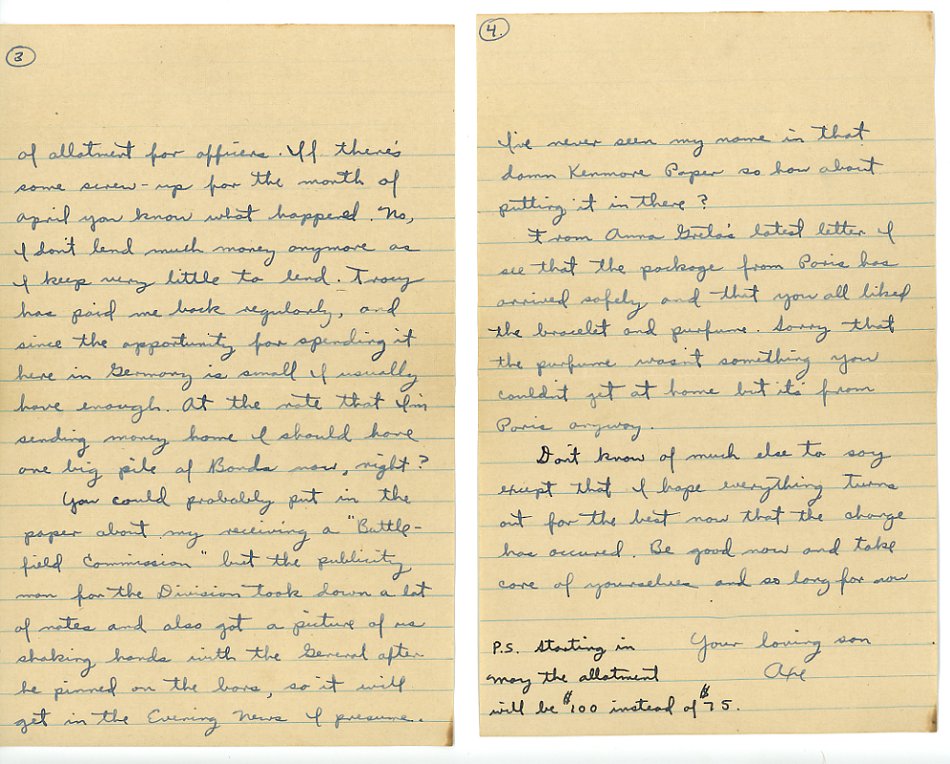 3
of allotment for officers. If there's
some screw-up for the month of
April you know what happened. No,
I don't lend much money anymore as
I keep very little to lend. Tracy
has paid me back regularly, and
since the opportunity for spending it
here in Germany is small I usually
have enough. At the rate that I'm
sending money home I should have
one big pile of Bonds now, right?
You could probably put in the
paper about my receiving a "Battle-
field Commission" but the publicity
man for the Division took down a lot
of notes and also got a picture of us
shaking hands with the General after
he pinned on the bars, so it will
get in the Evening News I presume.
4.
I've never seen my name in that
damn Kenmore Paper so how about
putting it in there?
From Anna Greta's latest letter I
see that the package from Paris has
arrived safely and that you all liked
the bracelet and purfume. Sorry that
the purfume wasn't something you
couldn't get at home but it's from
Paris anyway.
Don't know of much else to say
except that I hope everything turns
out for the best now that the change
has occured. Be good now and take
care of yourselves and so long for now
Your loving son
Axe
P.S. Starting in
may the allotment
will be $100 instead of $75.